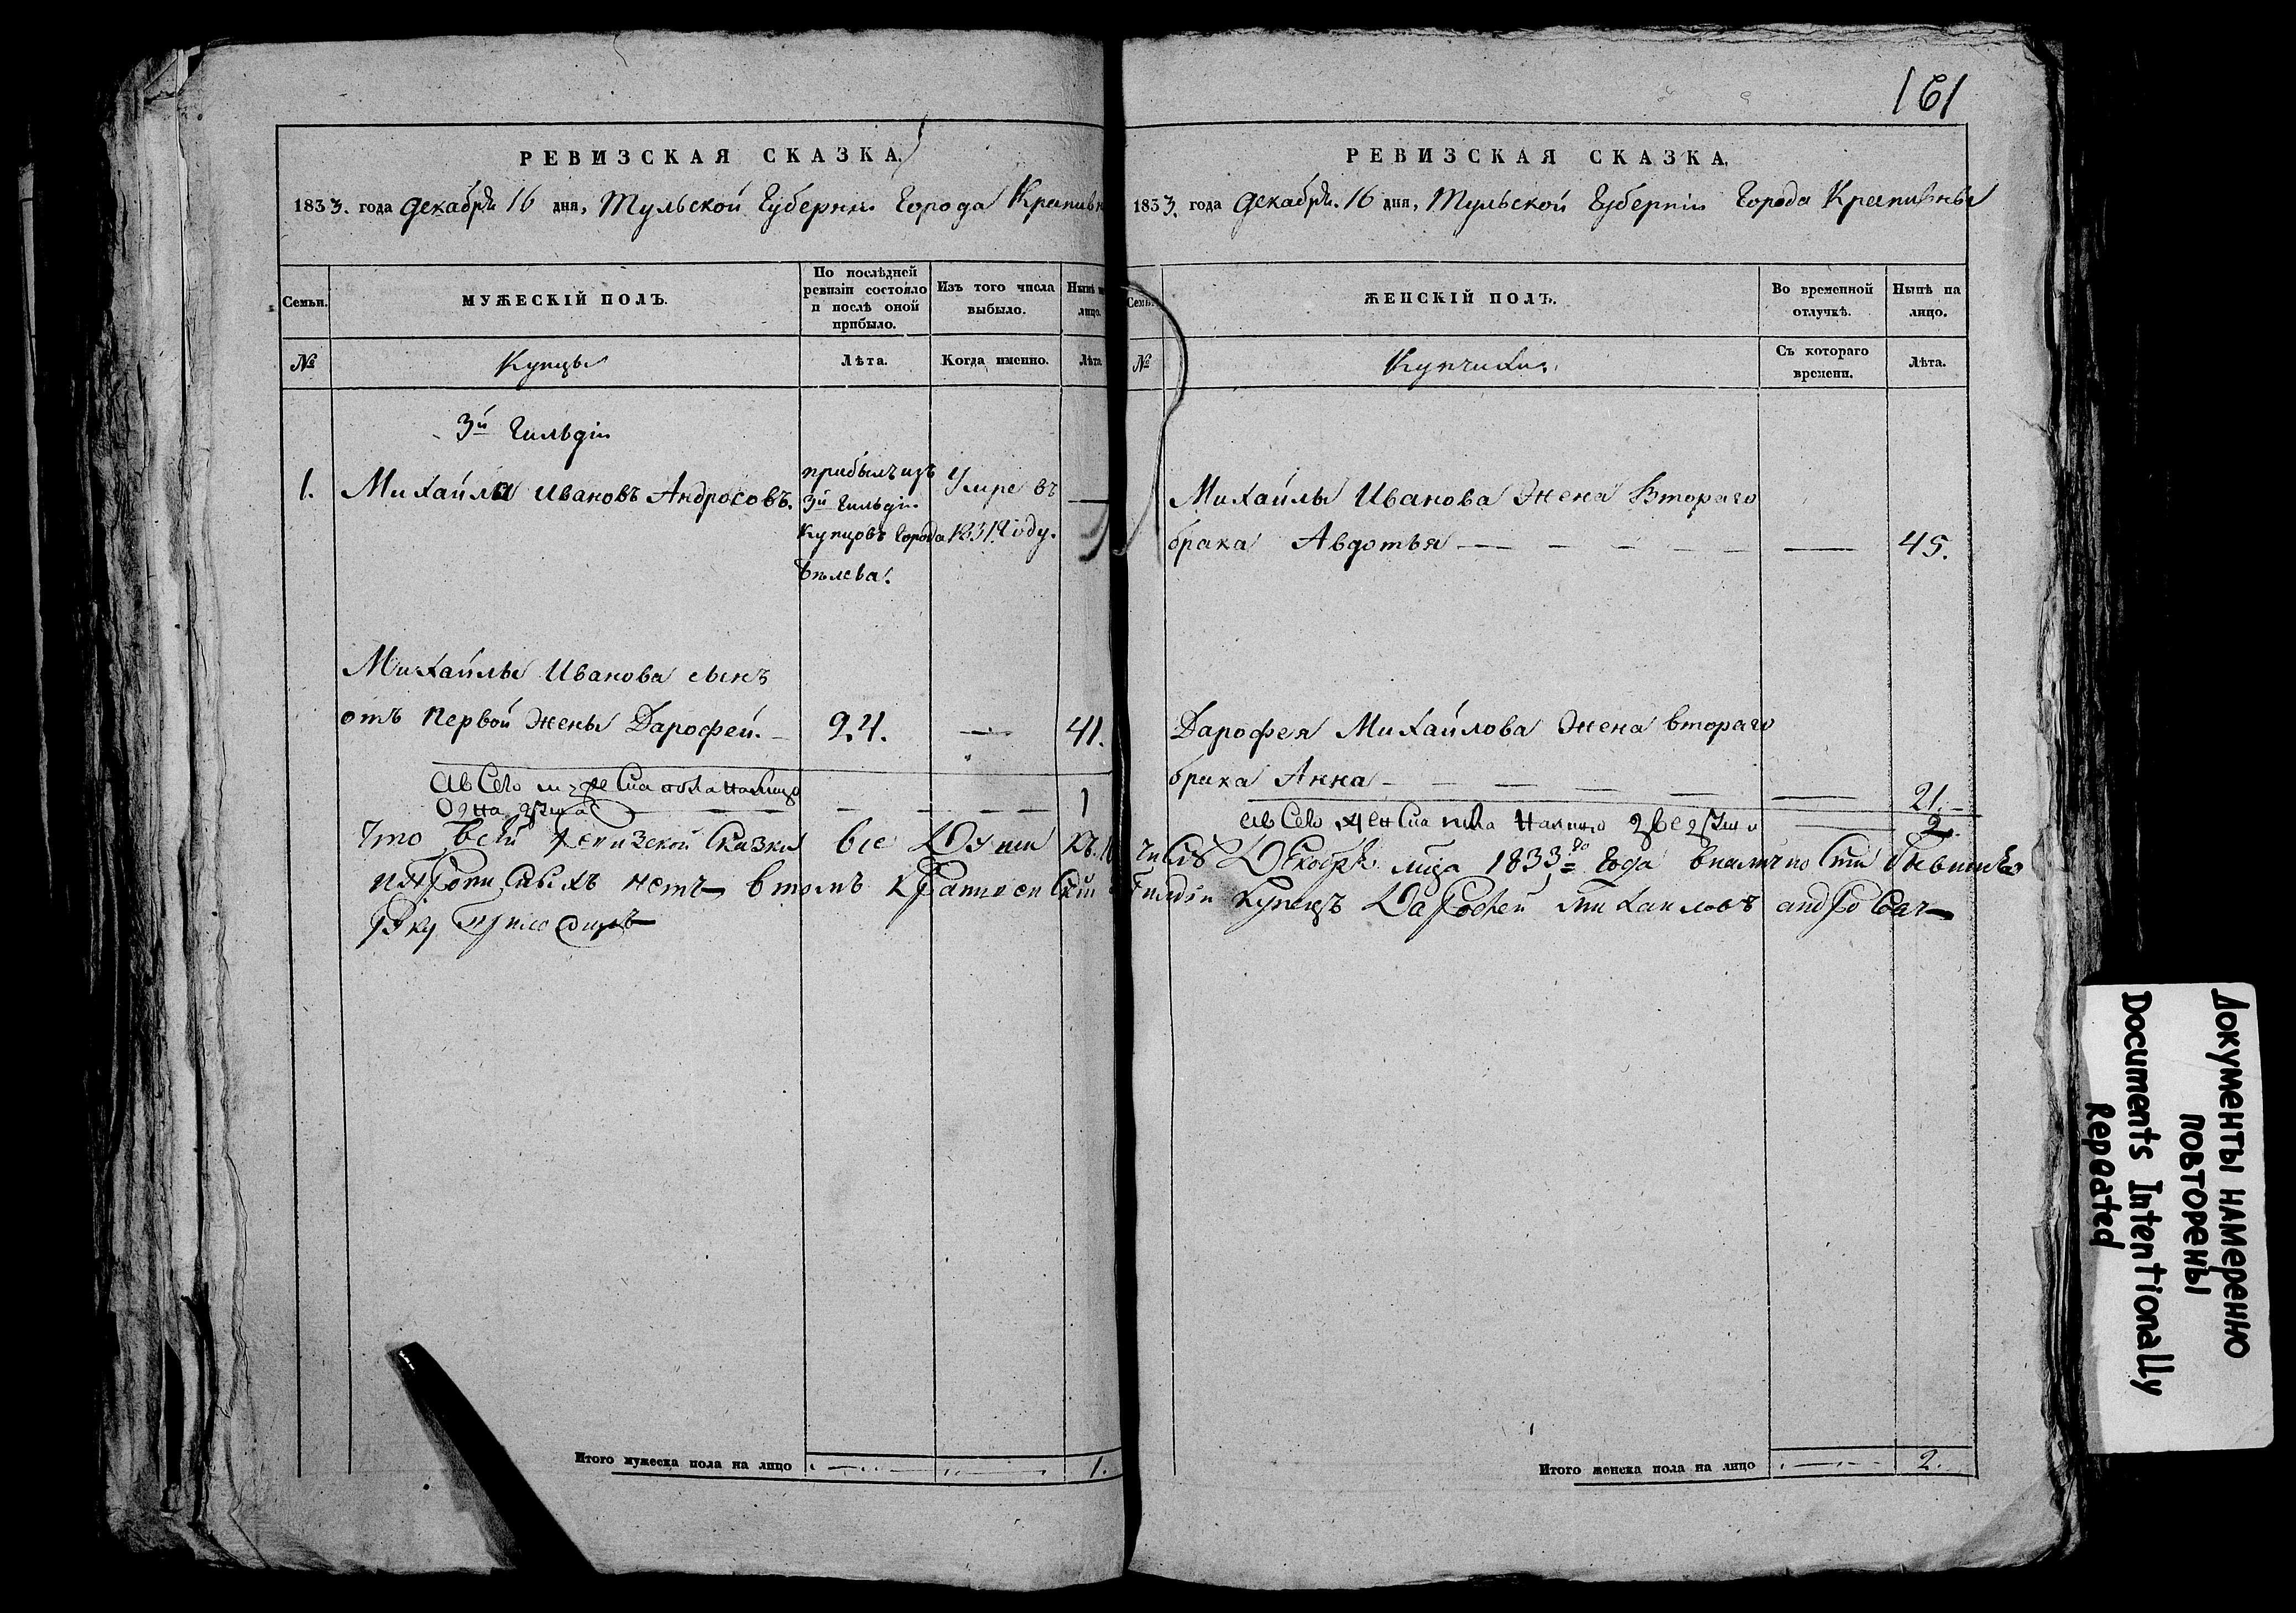 РЕВИЗСКАЯ СКАЗКА.
1833. года Декабря 16 дня, Тульской Губерніи Города Крапивн
Семьи.
МУЖЕСКІЙ ПОЛЪ.
По послѣдней ревизіи состояло и послѣ оной прибыло.
Изъ того числа выбыло.
Нынѣ на лицо.
№
Купцы
Лѣта.
Когда именно.
Лѣта.
3й Гильдіи
1.
Михайла Ивановъ Андросовъ.
прибылъ изъ
3й Гильдіи
Купцовъ Города
Бѣлева.
Умре въ
1831. Году.
—
Михайлы Иванова сынъ
отъ Первой Жены Дарофей. —
24.
—
41.
а всего мужеска пола налицо
Одна душа — — — — 1
Что всей ревизской сказки все Души къ 16
пропи сныхъ нетъ в томъ крапивенской
руку приложилъ
Итого мужеска пола на лицо
1.
161
РЕВИЗСКАЯ СКАЗКА.
1833. года Декабря. 16 дня, Тульской Губерніи Города Крапивны
Семьи.
ЖЕНСКІЙ ПОЛЪ.
Во временной отлучкѣ.
Нынѣ на лицо.
№
Купчихи.
Съ котораго времени.
Лѣта.
Михайлы Иванова Жена Втораго
брака Авдотья — — — — — — 45.
Дарофея Михайлова Жена втораго
брака Анна — — — — — — 21. —
а всего женска пола Налицо две души — 2.
числѣ Декабря мца 1833го Года вналично сти
Гилдіи купецъ Дарофей Михаиловъ андро
Итого женска пола на лицо
2.
Документы намеренно
повторены
Documents Intentionally
Repeated